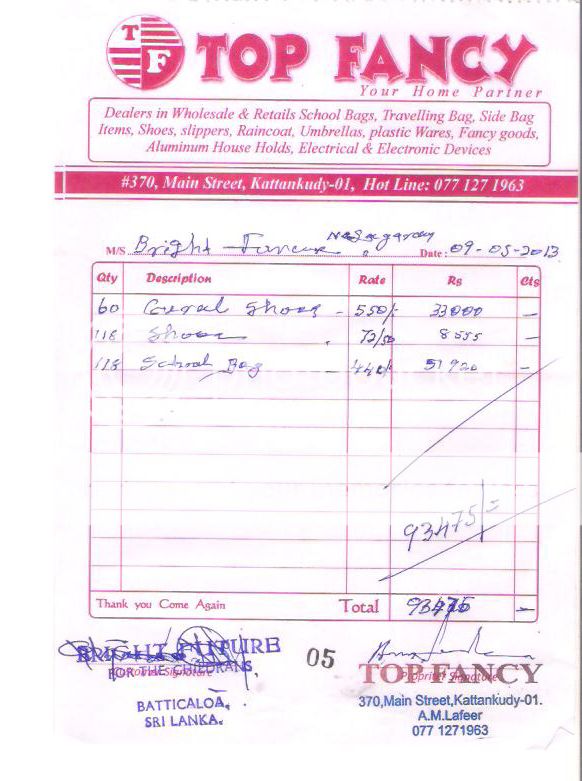 T
F
TOP FANCY
Your Home Partner
Dealers in Wholesale & Retails School Bags, Travelling Bag, Side Bag
Items, Shoes, slippers, Raincoat, Umbrellas, plastic Wares, Fancy goods,
Aluminum House Holds, Electrical & Electronic Devices
#370, Main Street, Kattankudy-01, Hot Line: 077 127 1963
M/S. Bright Date: 09-05-2013
Qty Description Rate Rs Cts
60 Shoes - 550/- 33000 -
118 Shoes 72/50 8555 -
118 School Bag 440/- 51920 -
93475/=
Thank you Come Again Total 93475 -
BRIGHT FUTURE
FOR THE CHILDRANS
BATTICALOA,
SRI LANKA.
05
TOP FANCY
370,Main Street,Kattankudy-01.
A.M.Lafeer
077 1271963